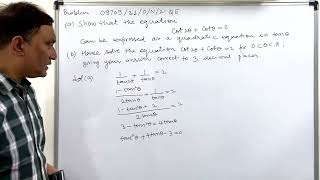 Problem : 09709/21/O/N/21 Q5
(a) Show that the equation
cot2θ + cotθ = 2
can be expressed as a quadratic equation in tanθ
(b) Hence solve the equation cot2θ + cotθ = 2 for 0<θ<π,
giving your answers correct to 3 decimal places.
Sol (a) 1/tan2θ + 1/tanθ = 2
1-tan²θ/2tanθ + 1/tanθ = 2
1-tan²θ+2/2tanθ = 2
3-tan²θ = 4tanθ
tan²θ + 4tanθ - 3 = 0